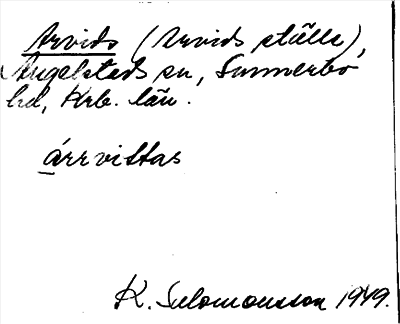 Arvids (Arvids ställe),
Angelsteds sn, Sunnerbo
hd, Krb. län.
árrvistas
K. Salomonsson 1949.